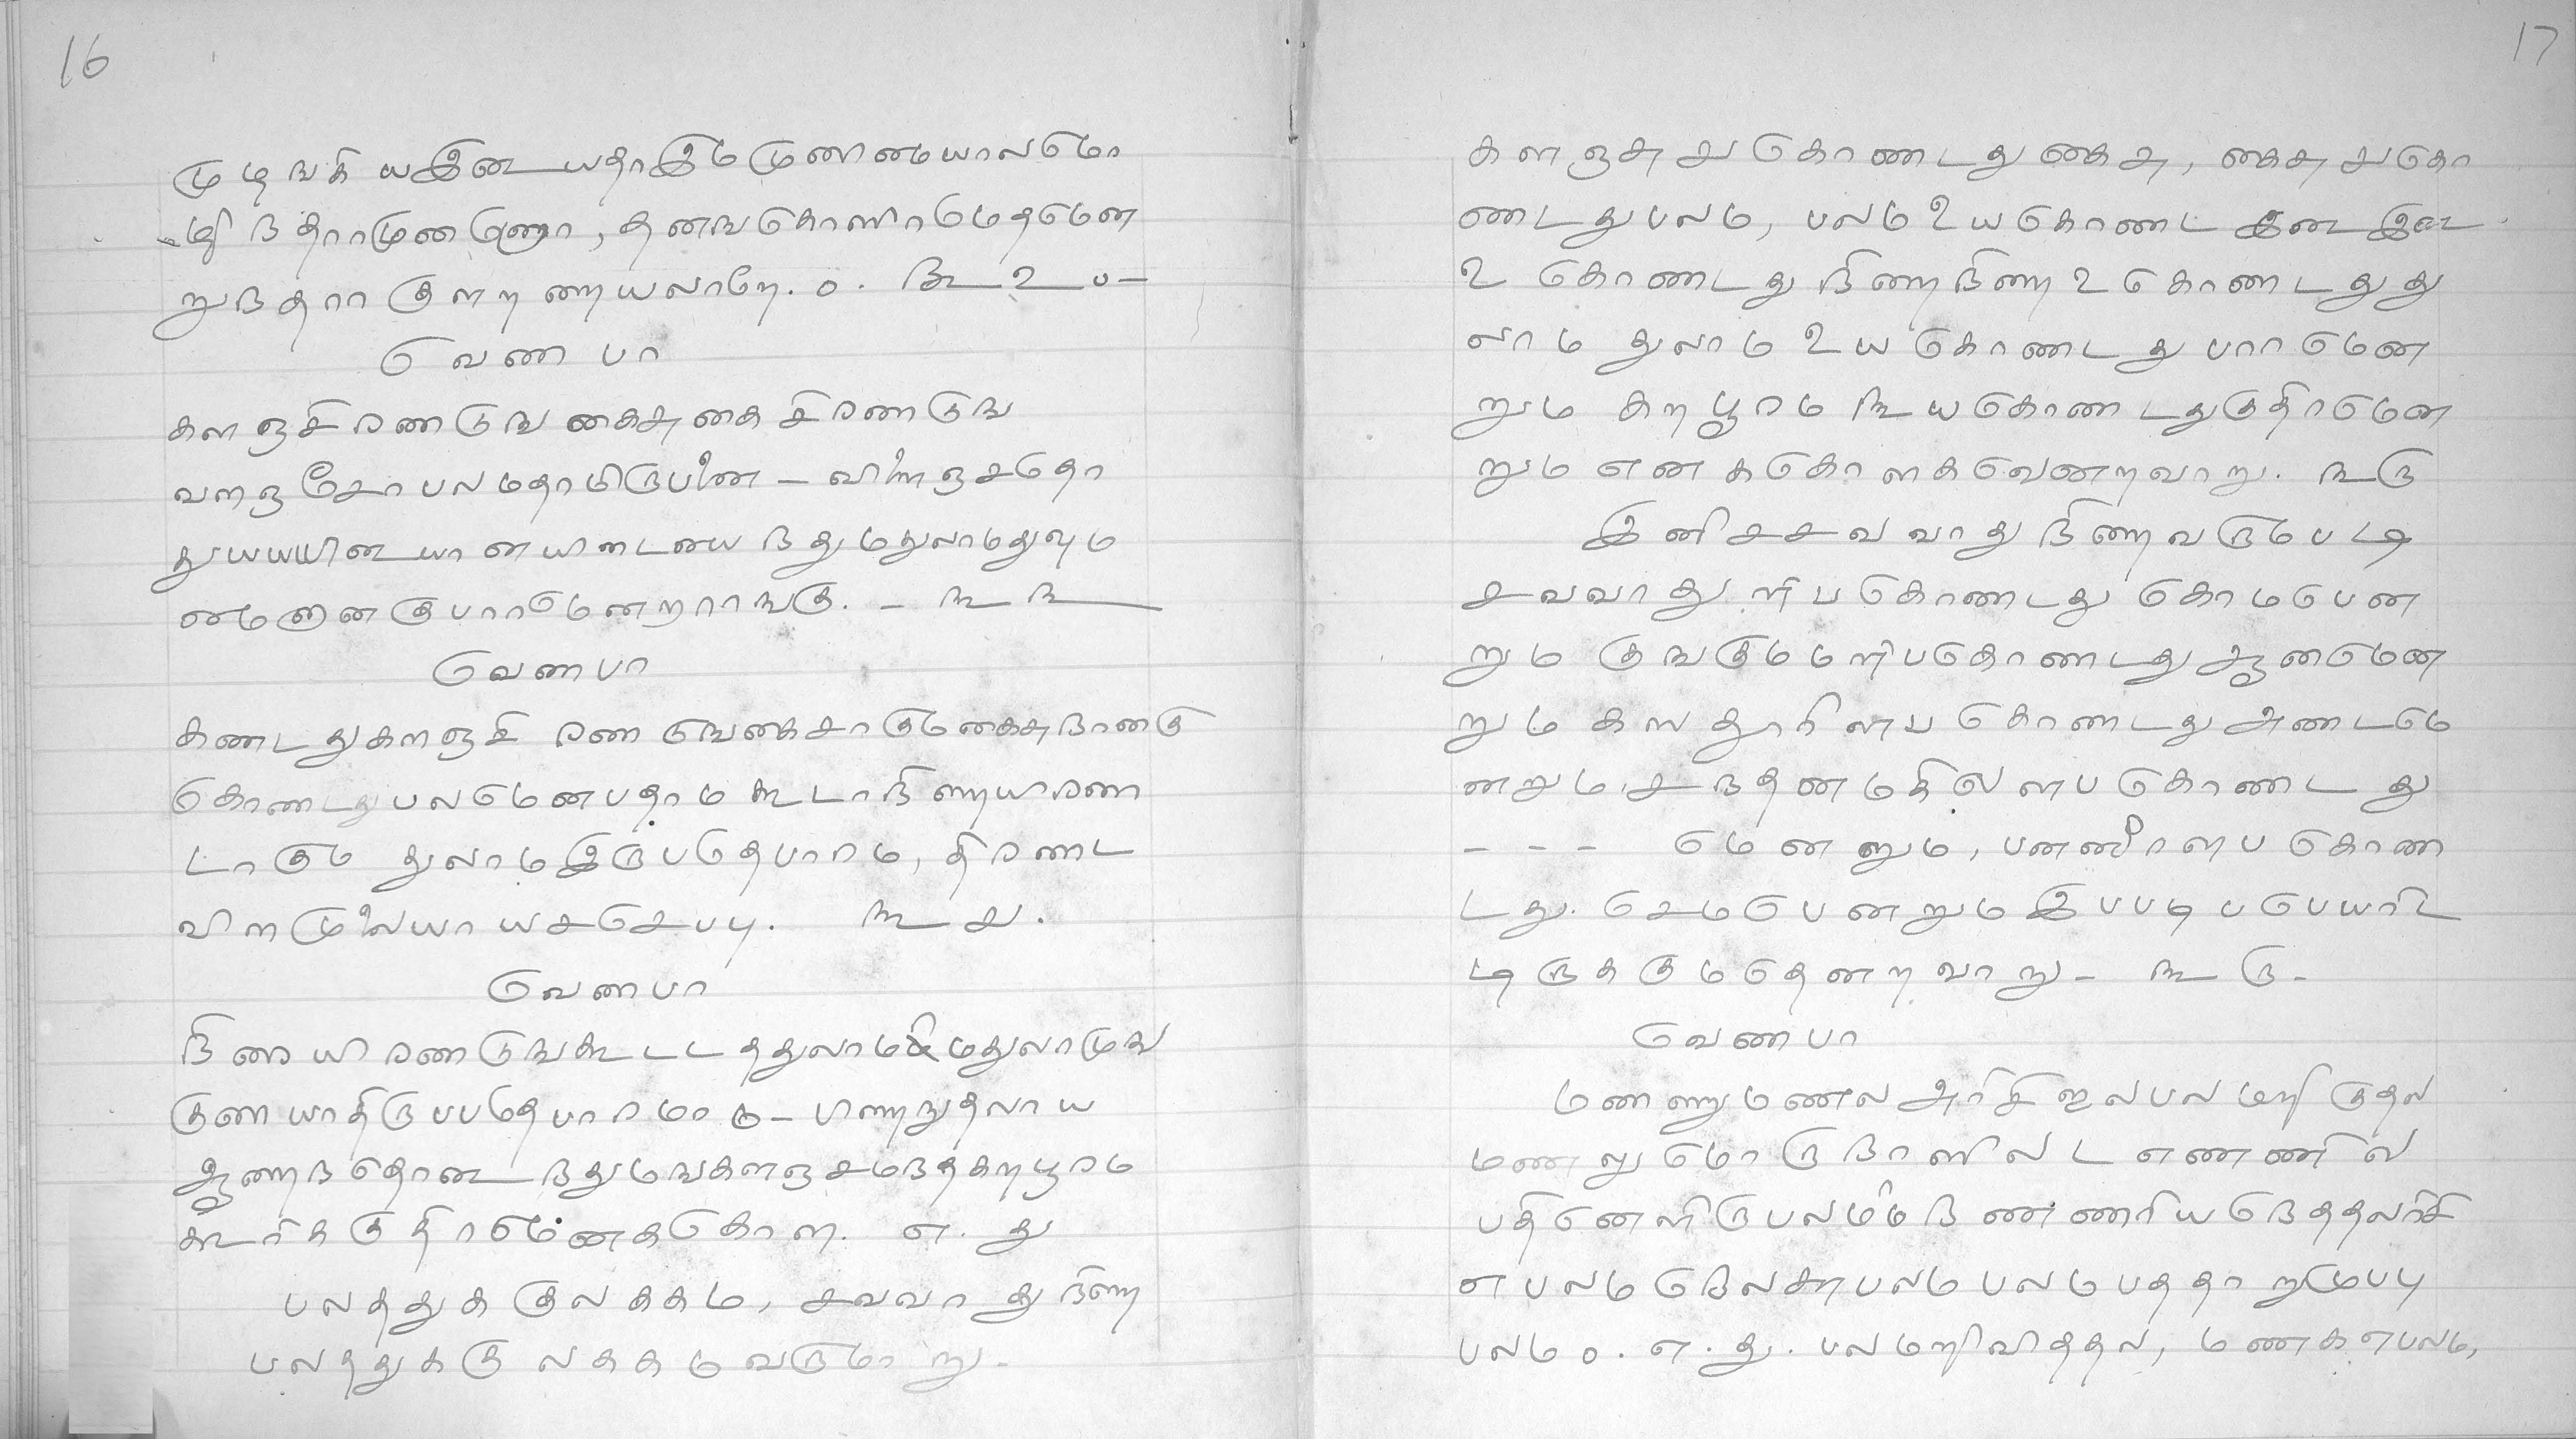 16
முடிஙகியஇடையதாஇமமுணமையாலமொ
ழிநதாரமுனனோ, தனஙகொளாமெதமென
றுநதாரகுளறணையலாறே. ௦. ௩௨௦—
வெணபா
களஞசிரணடுங கைசுகைசிரணடுங
வளஞசேர பலமதாமிருபனை – விளஞசதொ
துயயயினையானயிடையைநதுமதுலாமதுவும
மைனானகுபாரமெனறாரஙகு. – ௩௩
வெணபா
கணடதுகளஞசி ரணடுஙகைசாகுமகைசுநானகு
கொணடதுபலமெனபதாம கூடாநிறையிரண
டாகும துலாமஇருபதெபாரம, திரணட
விளமுலையாயசசெபபு. ௩௪.
வெணபா
நிறையிரணடுஙகூடடததுலாமமதுலாமுங
குறையாதிருபபதெபாரமாகு – பிறைநுதலாய
ஆறைநதொடைநதுமஙகளஞசமநதகறபூரம
கூரககுதிரமெனககொள. எ. து
பலததுககுலககம, சவவாதுநிறை
பலததுககு லககம வருமாறு.
17
களஞசு ௪ கொணடது கைசு, கைசு ௪ கொ
ணடதுபலம, பலம ௨௰ கொணட இடை இடை
௨ கொணடது நிறைநிறை ௨ கொணடதுது
லாம துலாம ௨௰ கொணடது பாரமென
றும கறபூரம ௩௰ கொணடதுகுதிரமென
றும எனககொளகவெனறவாறு. ௩௫
இனிசசவவாதுநிறைவருமபடி
சவவாது ளப கொணடது கொமபென
றும குஙகுமமளபகொணடதுஆனமென
றும கஸதூரிளப கொணடது அணடமெ
னறும, சநதனமகில ளப கொணடது
– – – மெனறும, பனனீரளப கொண
டது. செமபெனறும இபபடிபபெயரிட
டிருககுமதெனறவாறு – ௩௫ –
வெணபா
மணணுமணல அரிசிஜலபலமறிகுதல
மணணுமொருநாளில எணணில
பதினெளிருபலமநணணரியநெததலரிசி
எபலமநெலசுபலம பலமபததாறுமுபபு
பலம ௦. எ. து. பலமறிவிததல, மணக எபலம,